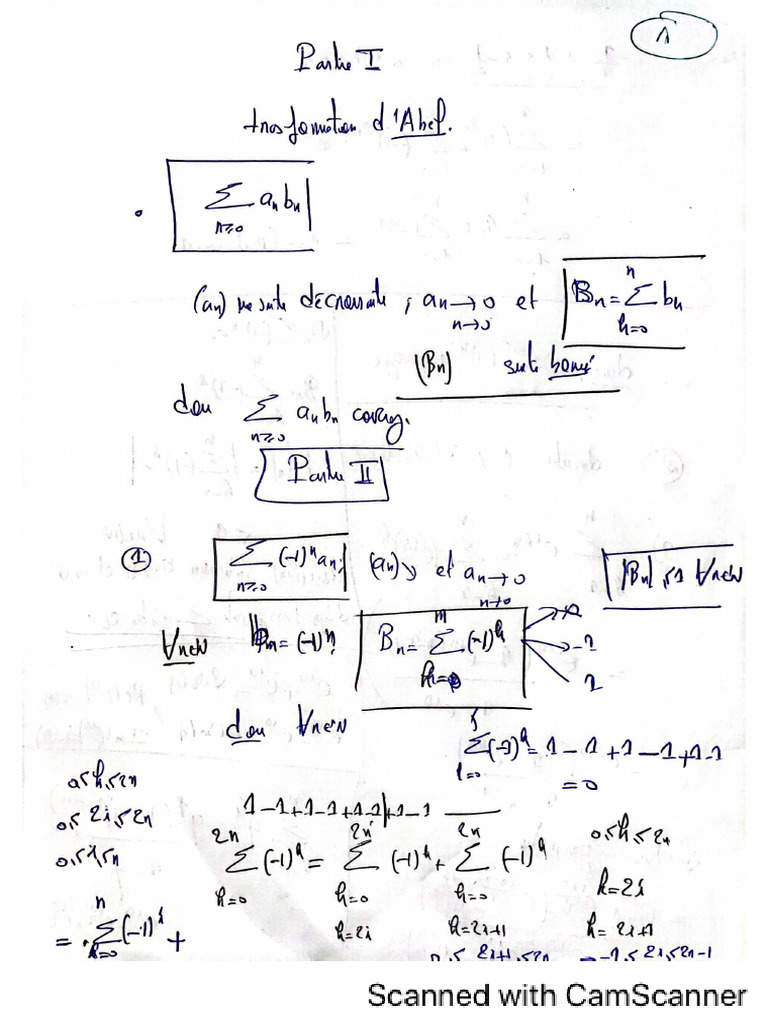 1
Partie I
transformation d'Abel.
∑_{n≥0} a_n b_n
(a_n) une suite décroissante, a_n → 0 et B_n = ∑_{k=0}^{n} b_k
n→0
(B_n) suite bornée
dou ∑_{n≥0} a_n b_n converg.
Partie II
① ∑_{n≥0} (-1)^n a_n; (a_n)↘ et a_n → 0
n→0
|B_n| ≤ 1 ∀n∈ℕ
∀n∈ℕ b_n = (-1)^n; B_n = ∑_{k=0}^{n} (-1)^k
-1
1
dou ∀n∈ℕ
∑(-1)^k = 1 - 1 + 1 - 1 + 1 - 1
= 0
0≤k≤2n
0≤2i≤2n
0≤i≤n
1-1+1-1+1-1+1-1
∑_{k=0}^{2n} (-1)^k = ∑_{k=0}^{2n} (-1)^k + ∑_{k=0}^{2n} (-1)^k
k=2i k=2i+1
0≤k≤2n
k=2i
k=2i+1
= ∑_{k=0}^{n} (-1)^i +
0≤2i+1≤2n
-1≤2i≤2n-1
Scanned with CamScanner